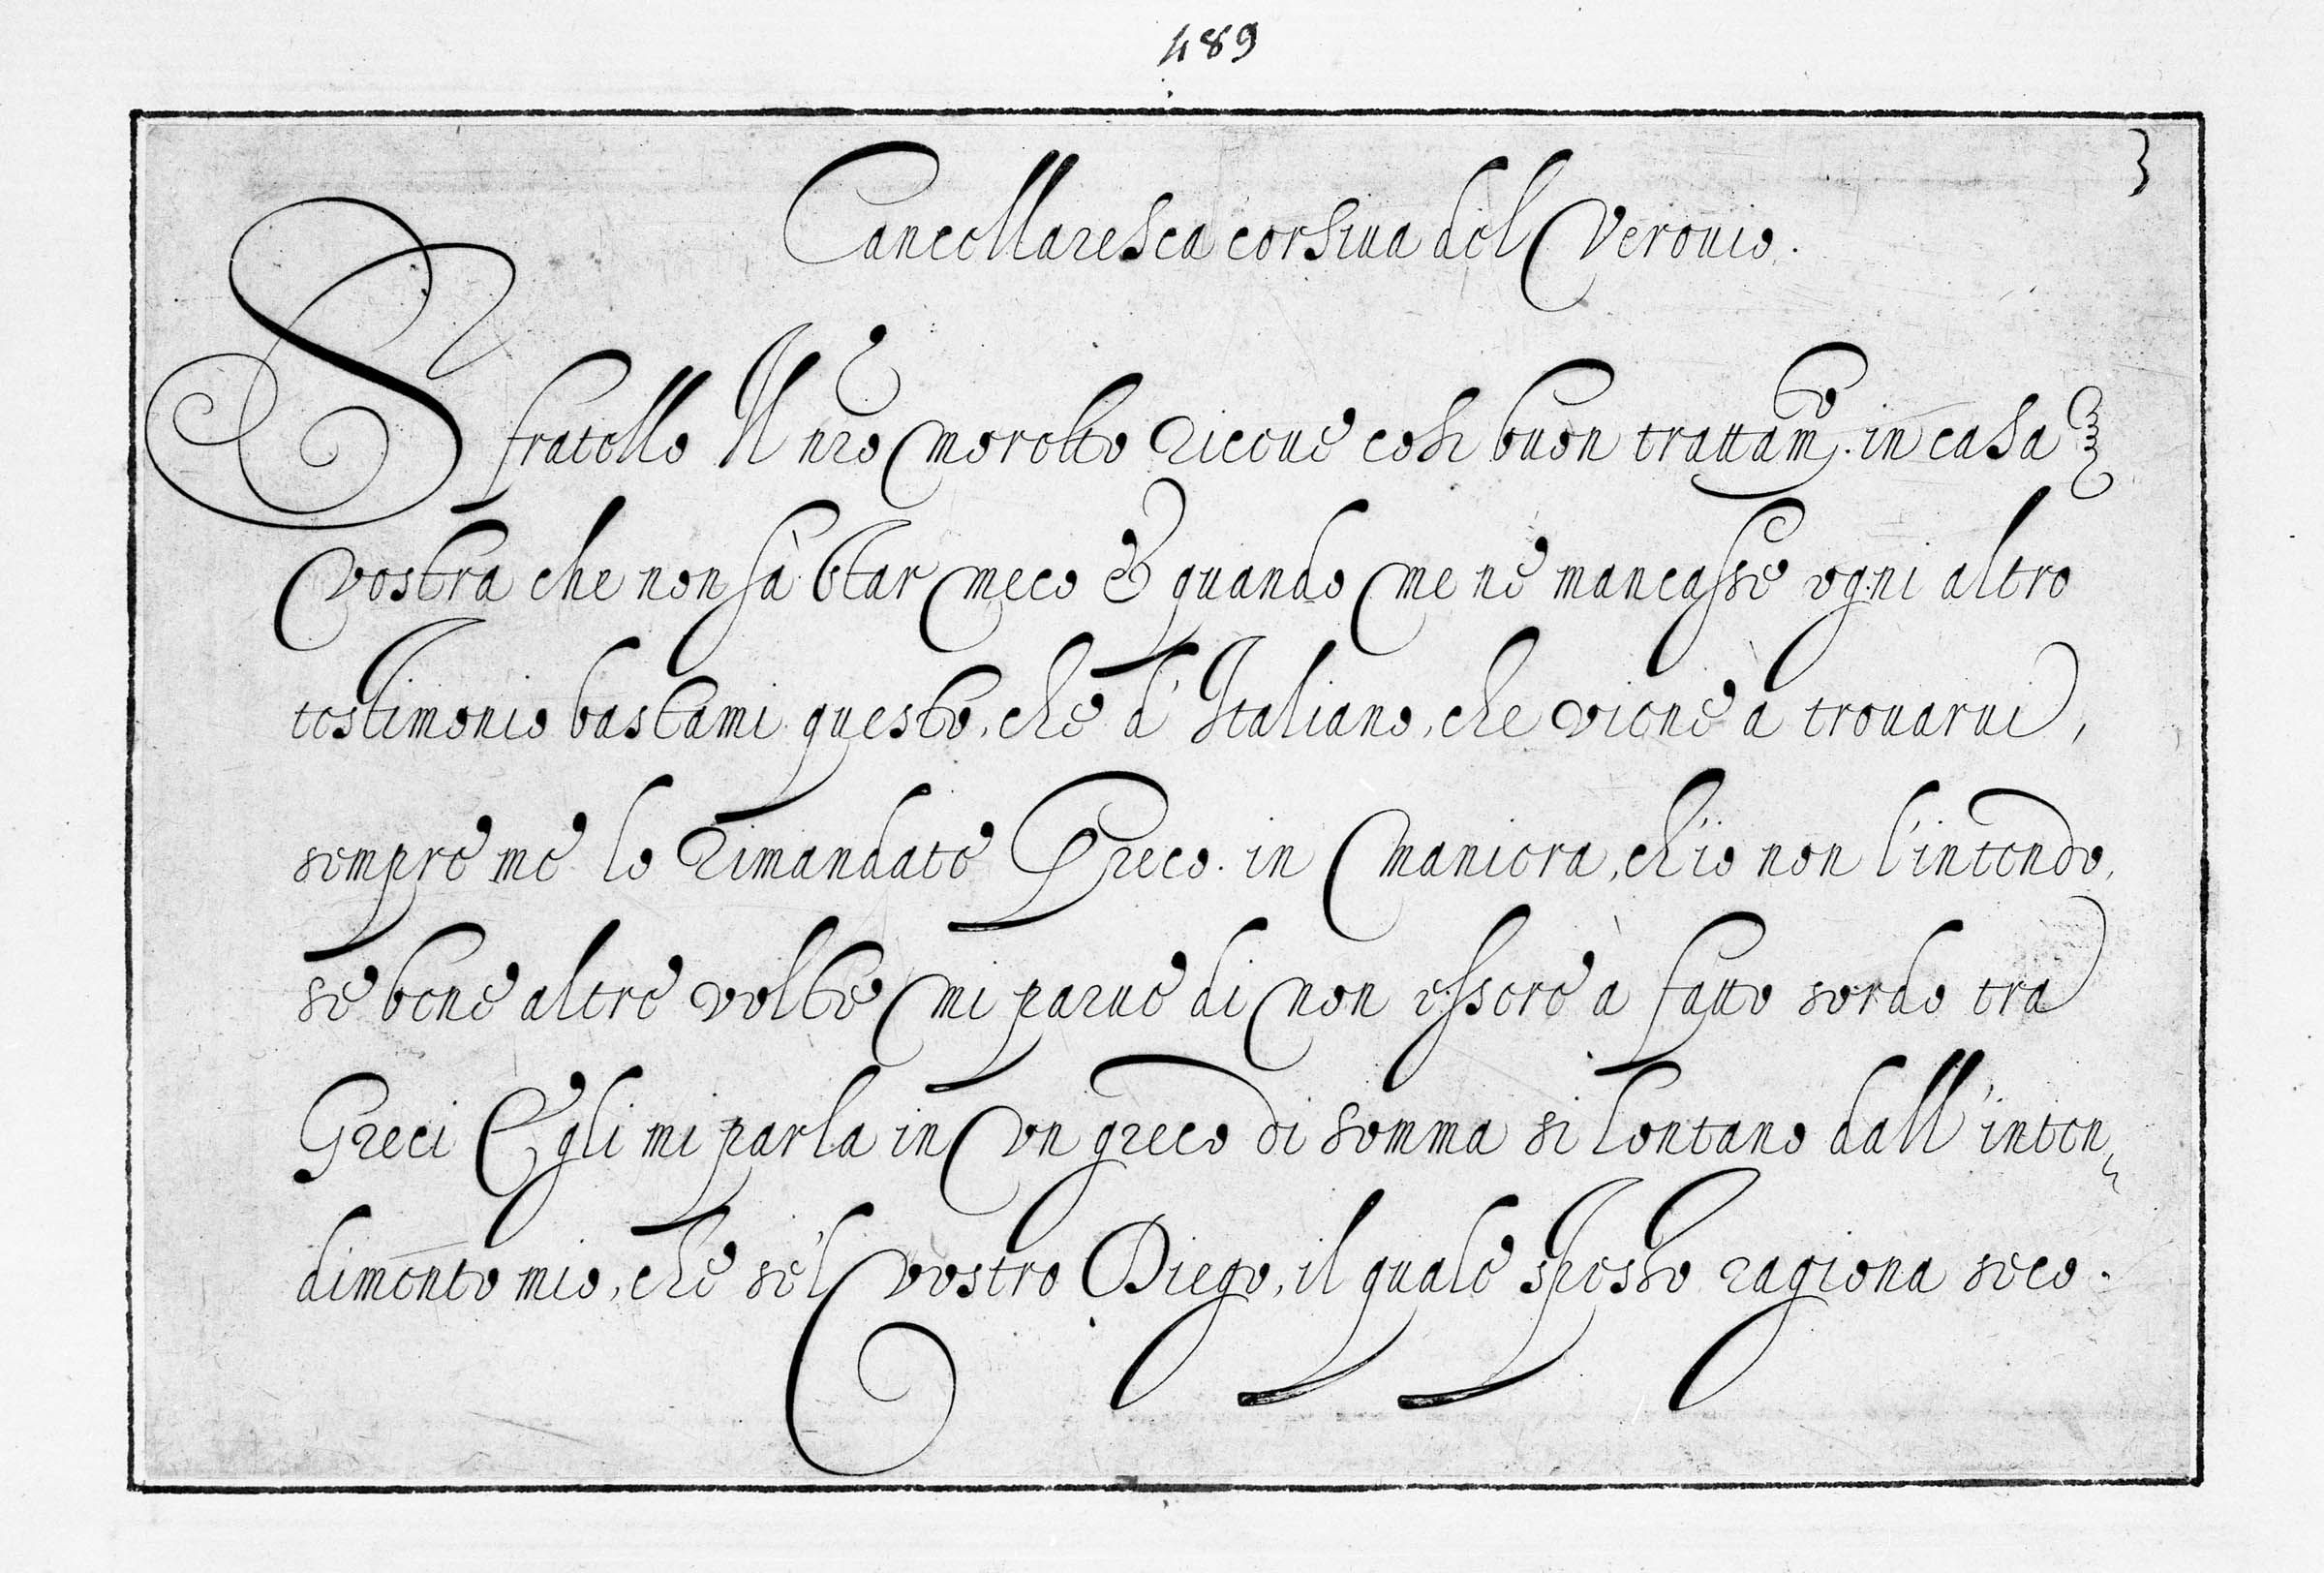 489
3
Cancellaresca corsiua del Verouio.
S fratello Il nro Moretto riceue cosi buon trattam.to in casa
vostra che non sà star meco & quando me ne mancasse ogni altro
testimonio bastami questo, che d'Italiano, che viene à trouarui,
sempre me lo rimandate Greco in maniera, ch'io non l'intendo,
se bene altre volte mi parue di non essere à fatto sordo tra
Greci Egli mi parla in vn greco di somma si lontano dall'inten
dimento mio, che se'l vostro Diego, il quale spesso ragiona seco.